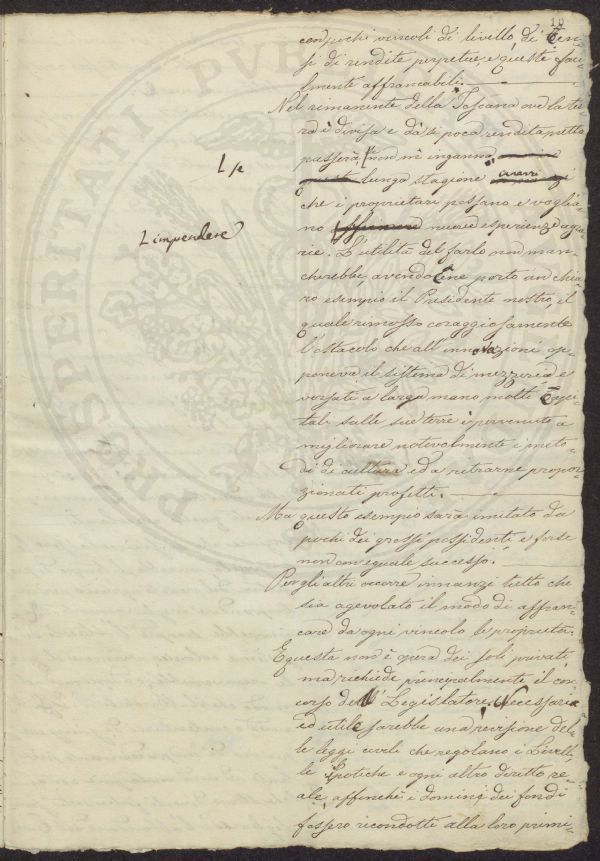 10
con pochi vincoli di livello, di Cen-
si di rendite perpetue, e queste facil-
mente affrancabili.
Nel rimanente della Toscana ove la ter-
ra è divisa e dà sì poca rendita netta
passerà, se non m'inganno
L se
lunga stagione innanzi
che i proprietari possano e voglia-
no nuove esperienze agra-
L imprendere
rie. L'utilità del farlo non man-
cherebbe, avendocene porto un chia-
ro esempio il Presidente nostro, il
quale rimosso coraggiosamente
l'ostacolo che all'innovazioni op-
poneva il sistema di mezzeria e
versati a larga mano molti Capi-
tali sulle sue terre è pervenuto a
migliorare notevolmente i meto-
di di cultura ed a ritrarne propor-
zionati profitti.
Ma questo esempio sarà imitato da
pochi dei grossi possidenti, e forse
non con eguale successo.
Per gli altri occorre innanzi tutto che
sia agevolato il modo di affran-
care da ogni vincolo le proprietà.
E questa non è opera dei soli privati,
ma richiede principalmente il con-
corso del Legislatore. Necessaria
ed utile sarebbe una revisione del-
le leggi civili che regolano i Livelli,
le ipoteche e ogni altro diritto re-
ale, affinché i domini dei fondi
fossero ricondotti alla loro primi-
PROSPERITATI PVBLICAE